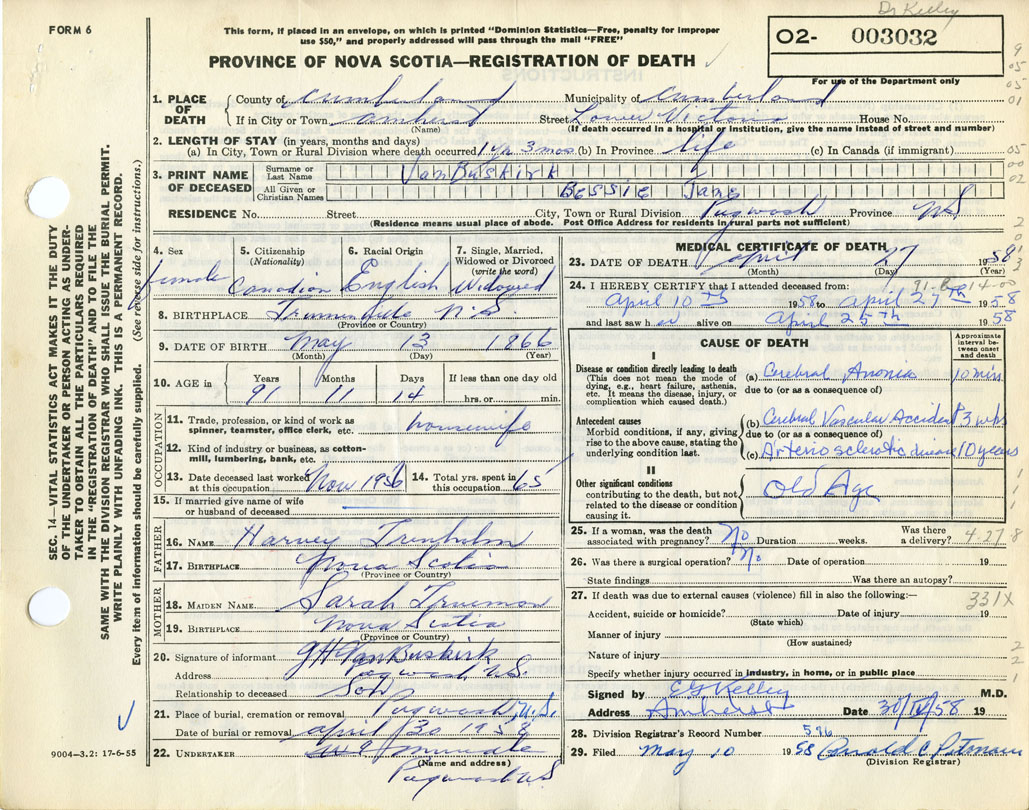 Dr Kelley
FORM 6
This form, if placed in an envelope, on which is printed "Dominion Statistics—Free, penalty for improper
use $50," and properly addressed will pass through the mail "FREE"
PROVINCE OF NOVA SCOTIA—REGISTRATION OF DEATH
O2- 003032
For use of the Department only
1. PLACE OF DEATH
County of Cumberland Municipality of Cumberland
If in City or Town Amherst Street Lower Victoria House No.
(Name) (If death occurred in a hospital or institution, give the name instead of street and number)
2. LENGTH OF STAY (in years, months and days)
(a) In City, Town or Rural Division where death occurred 1 yr 3 mos (b) In Province life (c) In Canada (if immigrant)
3. PRINT NAME OF DECEASED
Surname or Last Name VanBuskirk
All Given or Christian Names Bessie Jane
RESIDENCE No. Street City, Town or Rural Division Pugwash Province N.S
(Residence means usual place of abode. Post Office Address for residents in rural parts not sufficient)
4. Sex female
5. Citizenship (Nationality) Canadian
6. Racial Origin English
7. Single, Married, Widowed or Divorced (write the word) Widowed
8. BIRTHPLACE N.S.
(Province or Country)
9. DATE OF BIRTH May 13 1866
(Month) (Day) (Year)
10. AGE in Years 91 Months 11 Days 14 If less than one day old hrs. or min.
OCCUPATION
11. Trade, profession, or kind of work as spinner, teamster, office clerk, etc. housewife
12. Kind of industry or business, as cotton-mill, lumbering, bank, etc.
13. Date deceased last worked at this occupation Nov 1956 14. Total yrs. spent in this occupation 65
15. If married give name of wife or husband of deceased
FATHER
16. NAME Harvey Trenholm
17. BIRTHPLACE Nova Scotia
(Province or Country)
MOTHER
18. MAIDEN NAME Sarah Trueman
19. BIRTHPLACE Nova Scotia
(Province or Country)
20. Signature of informant G H VanBuskirk
Address Pugwash N.S.
Relationship to deceased Son
21. Place of burial, cremation or removal Pugwash, N.S.
Date of burial or removal April 30 1958
22. UNDERTAKER
(Name and address)
Pugwash N S
MEDICAL CERTIFICATE OF DEATH
23. DATE OF DEATH April 27 1958
(Month) (Day) (Year)
24. I HEREBY CERTIFY that I attended deceased from:
April 10th 1958 to April 27th 1958
and last saw her alive on April 25th 1958
CAUSE OF DEATH
Approximate interval between onset and death
I
Disease or condition directly leading to death
(This does not mean the mode of dying, e.g., heart failure, asthenia, etc. It means the disease, injury, or complication which caused death.)
(a) Cerebral Anoxia 10 mins
due to (or as a consequence of)
Antecedent causes
Morbid conditions, if any, giving rise to the above cause, stating the underlying condition last.
(b) Cerebral Vascular Accident 3 wks
due to (or as a consequence of)
(c) Arteriosclerotic disease 10 years
II
Other significant conditions
contributing to the death, but not related to the disease or condition causing it.
Old Age
25. If a woman, was the death associated with pregnancy? No Duration weeks. Was there a delivery?
4.27.8
26. Was there a surgical operation? No Date of operation 19
State findings Was there an autopsy?
27. If death was due to external causes (violence) fill in also the following:—
331X
Accident, suicide or homicide? Date of injury 19
(State which)
Manner of injury
(How sustained)
Nature of injury
Specify whether injury occurred in industry, in home, or in public place
Signed by E G Kelley M.D.
Address Amherst Date 30/IV/58 19
28. Division Registrar's Record Number 596
29. Filed May 10 1958
(Division Registrar)
SEC. 14—VITAL STATISTICS ACT MAKES IT THE DUTY
OF THE UNDERTAKER OR PERSON ACTING AS UNDER-
TAKER TO OBTAIN ALL THE PARTICULARS REQUIRED
IN THE "REGISTRATION OF DEATH" AND TO FILE THE
SAME WITH THE DIVISION REGISTRAR WHO SHALL ISSUE THE BURIAL PERMIT.
WRITE PLAINLY WITH UNFADING INK. THIS IS A PERMANENT RECORD.
Every item of information should be carefully supplied. (See reverse side for instructions.)
9004—3.2: 17-6-55